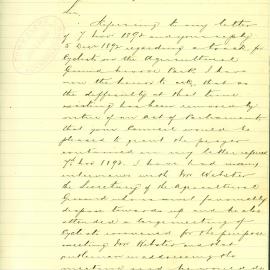 Sir,
Referring to my letter
of 7 Nov 1892 and your reply
5 Dec 1892 regarding a track for
Cyclists on the Agricultural
Ground Moore Park. I have
now the honor to ask that as
the difficulty at that time
existing has been removed by
virtue of an Act of Parliament
that your Council would be
pleased to grant the prayer
contained in my letter
7th Nov 1892. I have had many
interviews with Mr Webster
the Secretary of the Agricultural
Ground who is most favorably
dispose towards us and he also
attended a large meeting of
Cyclists convened for the purpose
meeting Mr Webster and that
gentleman in addressing the
meeting said he would do